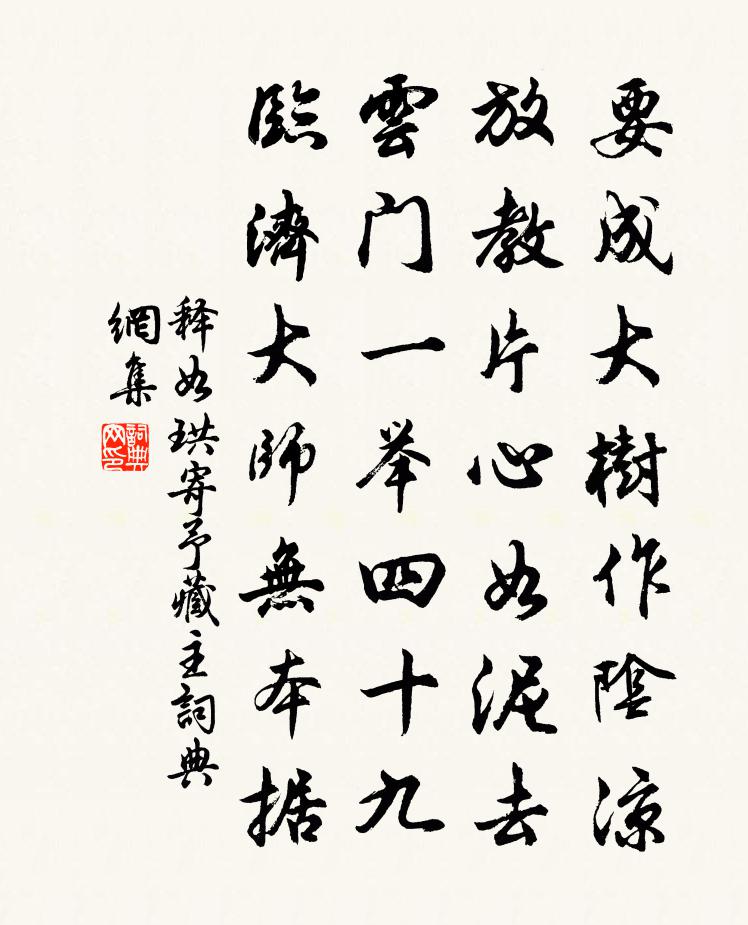 要成大樹作陰涼
放教片心如泥去
雲门一举四十九
臨濟大師無本据
释如珙寄予藏主詞典
網集
詞典
网印